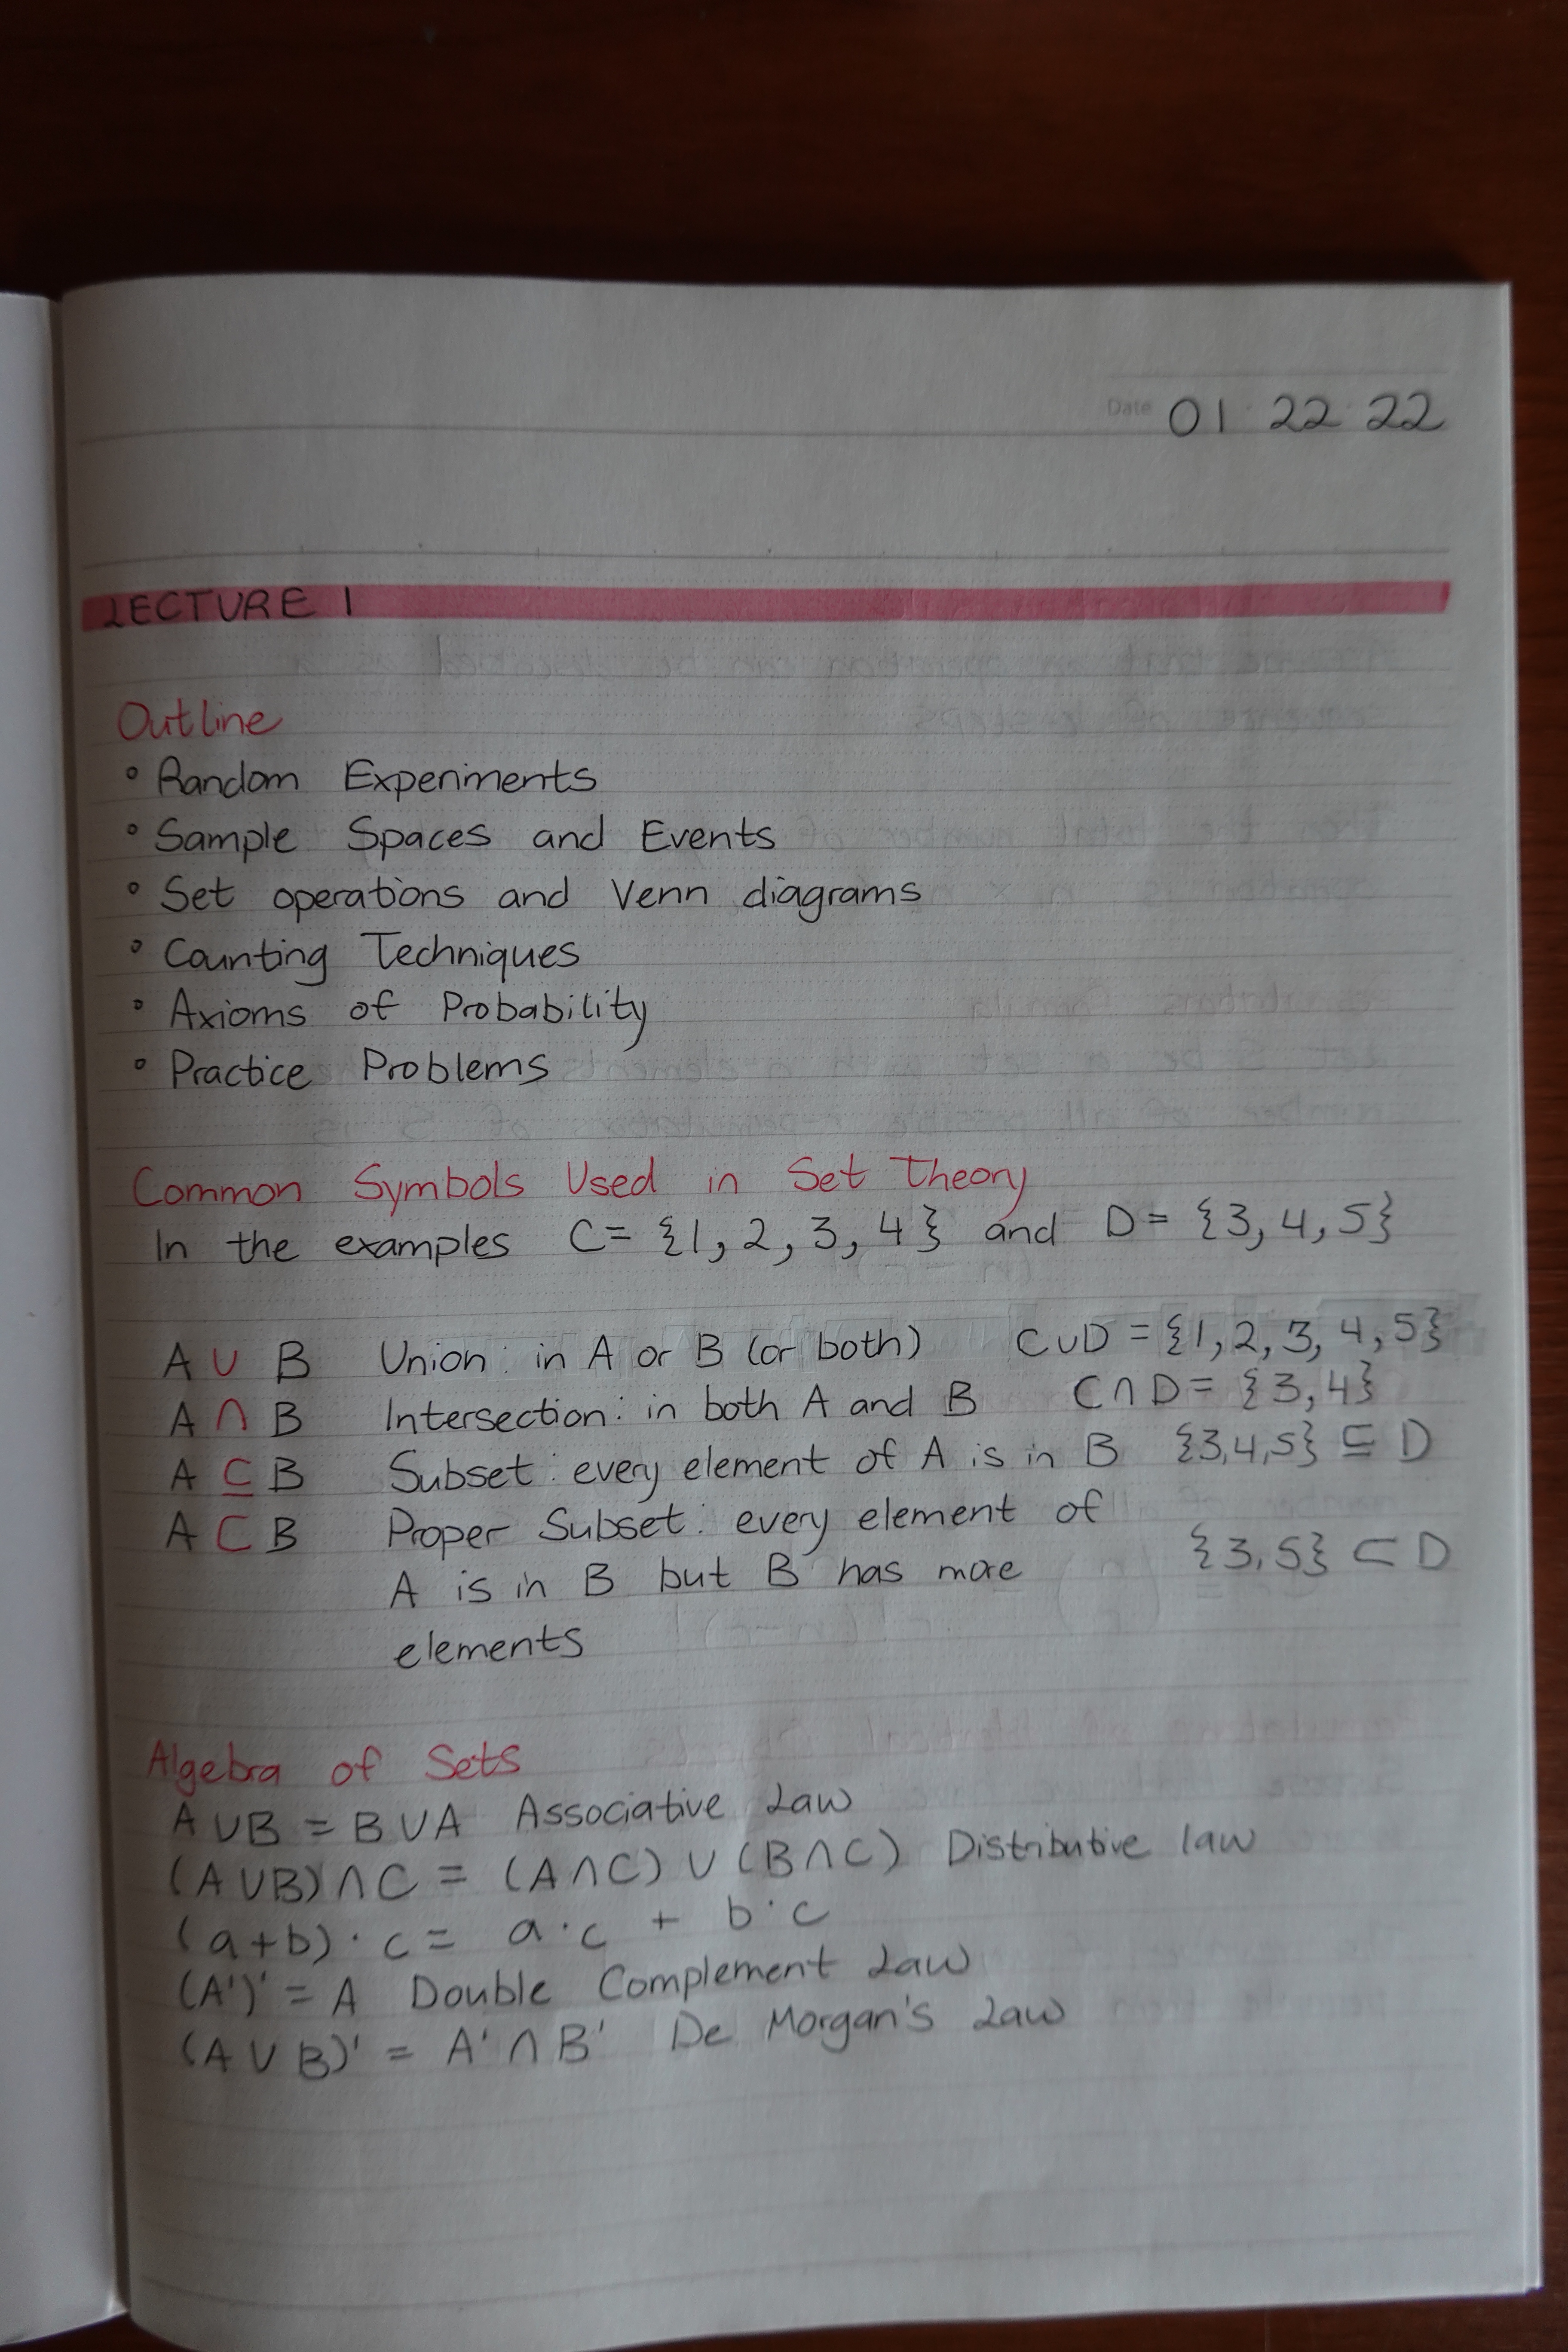 Date 01 22 22
LECTURE 1
Outline
° Random Experiments
° Sample Spaces and Events
° Set operations and Venn diagrams
° Counting Techniques
° Axioms of Probability
° Practice Problems
Common Symbols Used in Set Theory
In the examples C = {1, 2, 3, 4} and D = {3, 4, 5}
A ∪ B Union: in A or B (or both) C∪D = {1, 2, 3, 4, 5}
A ∩ B Intersection: in both A and B C∩D = {3,4}
A ⊆ B Subset: every element of A is in B {3,4,5} ⊆ D
A ⊂ B Proper Subset: every element of
A is in B but B has more {3,5} ⊂ D
elements
Algebra of Sets
A∪B = B∪A Associative Law
(A∪B)∩C = (A∩C) ∪ (B∩C) Distributive law
(a+b)·c = a·c + b·c
(A')' = A Double Complement Law
(A ∪ B)' = A' ∩ B' De Morgan's Law